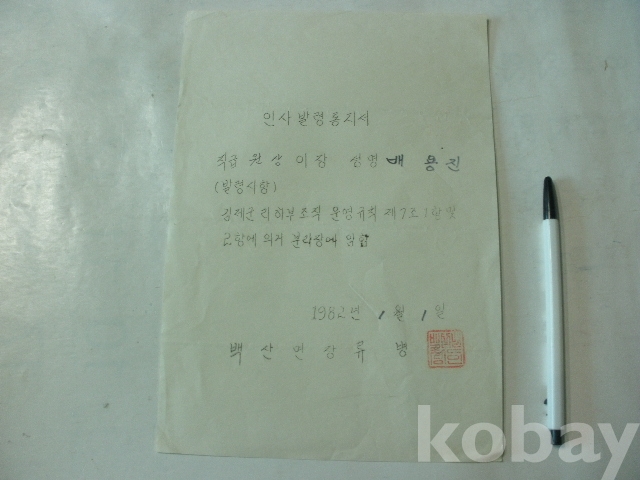 인사발령통지서
직급 원상이장 성명 배용진
(발령사항)
김제군리하부조직 운영규칙 제7조 1항 및
2항에 의거 분리장에 임함
1982년 1월 1일
백산면장 류병
kobay